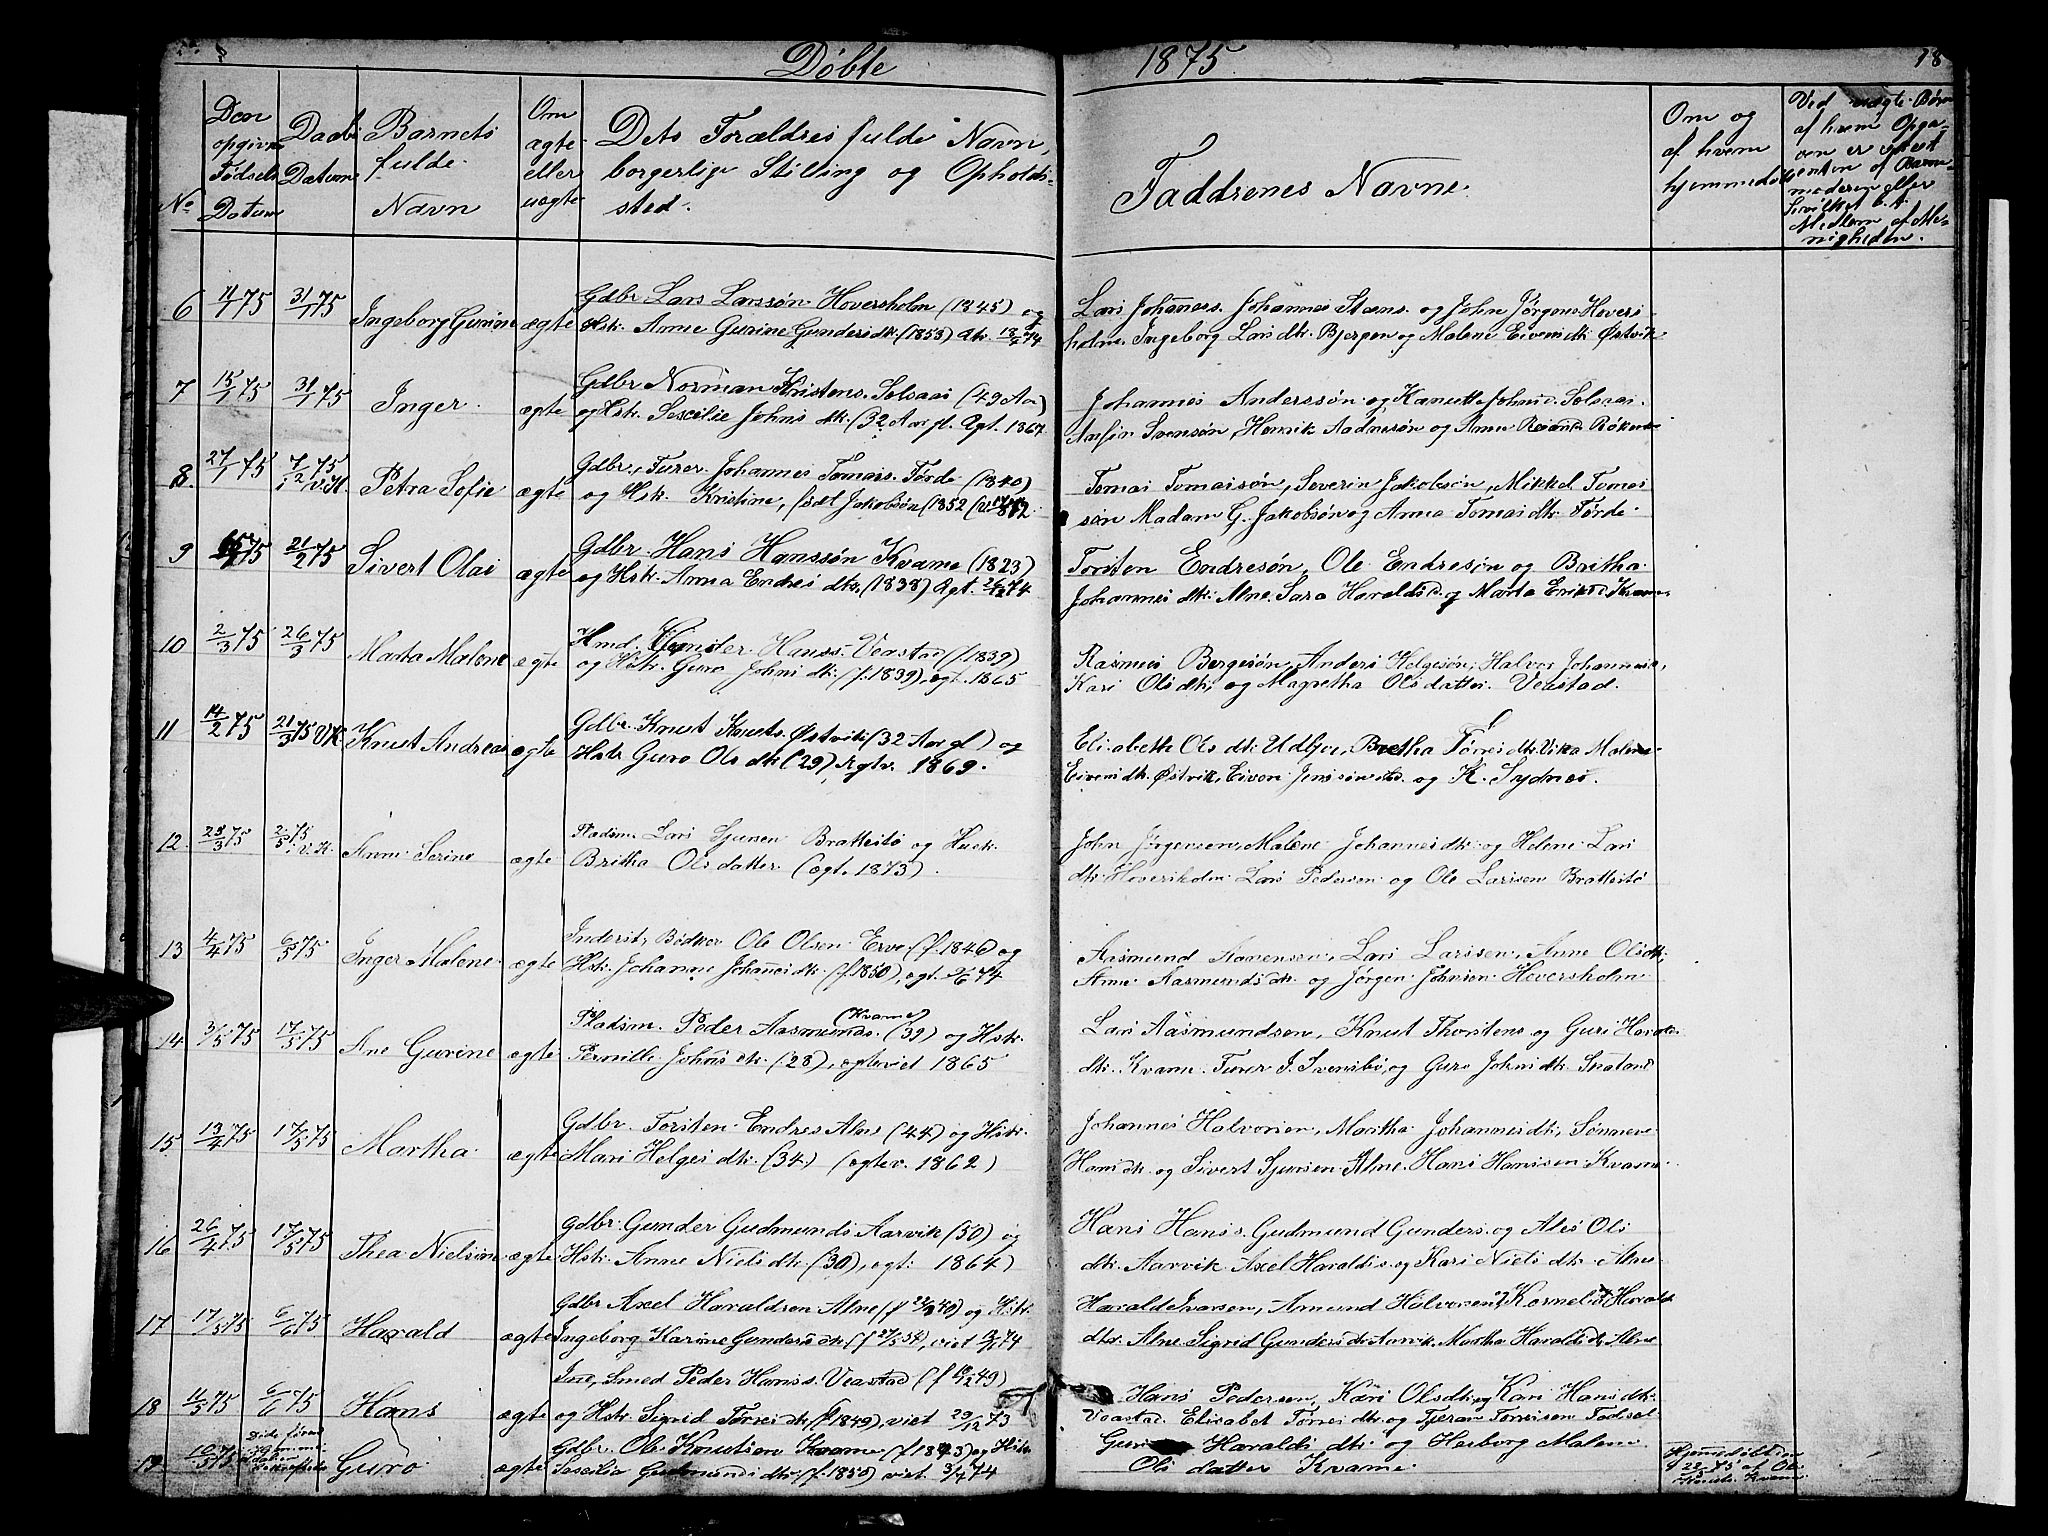 Døbte 1875. 18
No
Den opgivne Fødsels Datum
Daabs Datum
Barnets fulde Navn
Om ægte eller uægte
Dets Forældres fulde Navn, borgerlige Stilling og Opholdssted.
Faddrenes Navne.
Om og af hvem hjemmedøbt
Ved uægte Børn af hvem Opgaven er
Medlem af Menigheden.
6 11/1 75 31/1 75 Ingeborg Gurine ægte
Gdbr Lars Larssøn Hovershølm (1845) og
Hstr. Anne Gurine Gunders dtr. (1853) 74
Lars Johannes. Johannes Steens. og John Jørgens Hovers-
holm. Ingeborg Lars dtr. Bjergen og Malene Eivens dtr. Østvik
7 15/1 75 31/1 75 Inger. ægte
Gdbr Norman Kristens. Solsaas (49 Aar)
og Hstr. Sescilie Johns dtr. (32 Aar gl. Ægt. 1867.
Johannes Anderssøn og Kanutte Johnsd. Solsaas.
Svensøn, Henrik Aadnesøn og Anna
8. 27/1 75 7/2 75 i V.K. Petra Sofie ægte
Gdbr, Furer. Johannes Tomass. Førde (1840)
og Hstr. Kristine, født Jakobsøn (1852
Tomas Tomassøn, Severin Jakobsøn, Mikkel Tomas
søn Madam G. Jakobsøn og Anna Tomas dtr. Førde.
9 75 21/2 75 Sivert Olai ægte
Gdbr. Hans Hanssøn Kvame (1823)
og Hstr. Anna Endres dtr. (1838) Ægt. 74
Torsten Endresøn, Ole Endresøn og Britha
Johannes dtr. Alne. Sara Haralds d. og Marta Eriks d. Kvame
10 2/3 75 26/3 75 Marta Malene ægte
Hmd. Hanss. Veastad (f. 1839)
og Hstr. Guro Johns dtr. (f. 1839), ægt. 1865
Rasmus Bergesøn, Anders Helgesøn, Halvor Johannes.,
Kari Ols dtr. og Magretha Olsdatter. Veastad.
11 14/2 75 21/3 75 V.K. Knut Andreas ægte
Gdbr. Knut Knuts. Østvik (32 Aar gl) og
Hstr Guro Ols dtr. (29), Ægtv. 1869.
Elisabeth Ols dtr. Bretha Tørres dtr. Vika Malene
Eivens dtr. Østvik, Eiven Jenssøn og K. Sydnes.
12. 28/3 75 2/5 75 i V.K. Anne Serine ægte
Pladsm. Lars Sjursen Brattestø og Hustr.
Britha Olsdatter (ægt. 1873).
John Jørgensen, Malene Johannes dtr. og Helene Lars
dtr. Hoversholm. Lars Pedersen og Ole Larssen Brattestø
13 4/4 75 6/5 75 Inger Malene ægte
Inderst, Bødker Ole Olsen Erve (f. 1846) og
Hstr. Johanne Johannes dtr. (f. 1850), ægt. 74
Aasmund Aanensen, Lars Larssen, Anne Olsdtr.
Ane Aasmunds dtr. og Jørgen Johnsen Hoversholm
14 3/5 75 17/5 75 Ane Gurine ægte
Pladsm. Peder Aasmunds. (Kvame) (39) og Hstr.
Pernille Johns dtr. (28), ægteviet 1865
Lars Aasmundsen, Knut Thorstens og Guri Haralds
dtr. Kvame. Furer J. Svensbø, og Guro Johns dtr.
15 13/4 75 17/5 75 Martha ægte
Gdbr. Torsten Endres. Alne (44) og Hstr.
Mari Helges dtr. (34) (ægtev. 1862)
Johannes Halvorsen, Martha Johannes dtr, Sønneve
Hans dtr. og Sivert Sjursen Alne. Hans Hanssen Kvame
16 26/4 75 17/5 75 Thea Nielsine ægte
Gdbr. Gunder Gudmunds Aarvik (50) og
Hstr. Anne Niels dtr. (30), ægt. 1864)
Hans Hans s. Gudmund Gunders. og Ales Ols
dtr. Aarvik. Axel Haralds s. og Kari Niels dtr. Alne
17 17/5 75 6/6 75 Harald ægte
Gdbr Axel Haraldsen Alne (f 40) og Hstr.
Ingeborg Karine Gunders dtr. (f 54), viet 74
Harald Ivarsen, Amund Halvorsen, Kornelia Haralds
dtr. Alne. Sigrid Gunders dtr. Aarvik. Martha Haralds dtr. Alne
18 11/5 75 6/6 75 Hans ægte
Ine, Smed Peder Hanss. Veastad (f 49)
og Hstr. Sigrid Tørres dtr. (f. 1849), viet 29/12 73
Hans Pedersen, Kari Olsdtr. og Kari Hans dtr.
Veastad. Elisabet Tørres dtr. og Tjeran Torressen
19 10/5 75 Guro ægte
Gdbr. Ole Knutsen Kvame (f. 1843) og Hstr.
Sescilia Gudmunds dtr. (f. 1850) viet 74
Guri Haralds dtr. og Herborg Malene
Ols datter Kvame.
Hjemmedøbt den 23/5 75 af Ole Knuts. Kvame